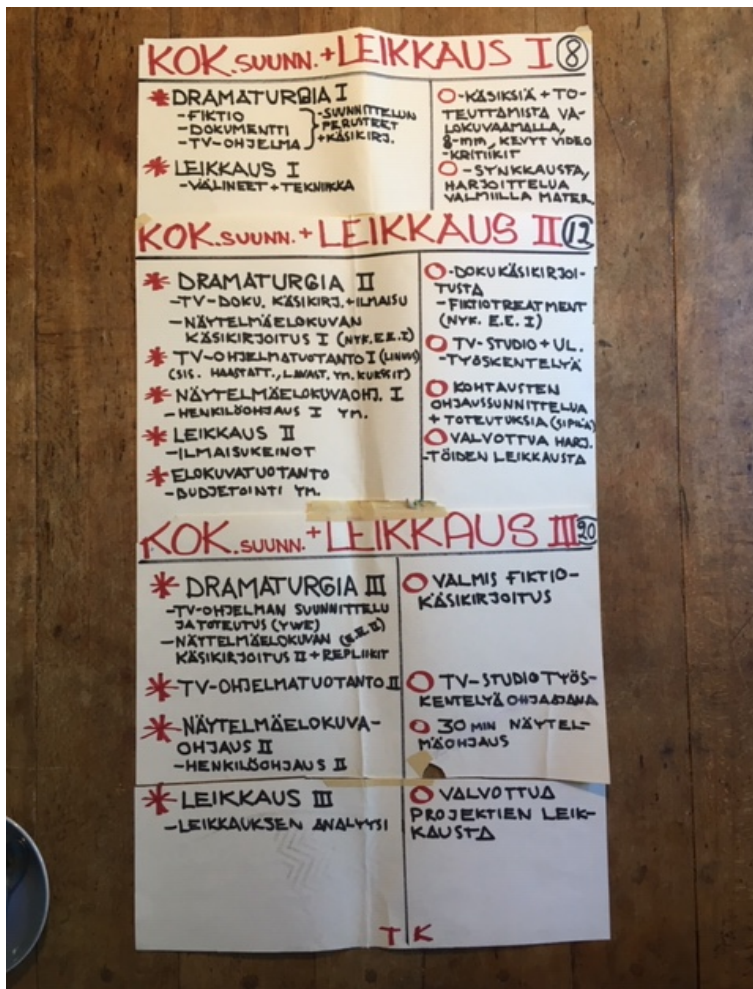 KOK.SUUNN.+LEIKKAUS I 8
* DRAMATURGIA I
-FIKTIO
-DOKUMENTTI
-TV-OHJELMA
-SUUNNITTELUN
PERUSTEET
+KÄSIKIRJ.
* LEIKKAUS I
-VÄLINEET+TEKNIIKKA
O-KÄSIKSIÄ+TO-
TEUTTAMISTA VA-
LOKUVAAMALLA,
8-MM, KEVYT VIDEO
-KRITIIKIT
O-SYNKKAUSTA,
HARJOITTELUA
VALMIILLA MATER.
KOK.SUUNN.+LEIKKAUS II 12
* DRAMATURGIA II
-TV-DOKU. KÄSIKIRJ.+ILMAISU
-NÄYTELMÄELOKUVAN
KÄSIKIRJOITUS I (NYK.E.E.I)
* TV-OHJELMATUOTANTO I (LINUS)
(SIS. HAASTATT., LAVAST. YM. KURSSIT)
* NÄYTELMÄELOKUVAOHJ. I
-HENKILÖOHJAUS I YM.
* LEIKKAUS II
-ILMAISUKEINOT
* ELOKUVATUOTANTO
-BUDJETOINTI YM.
O-DOKUKÄSIKIRJOI-
TUSTA
-FIKTIOTREATMENT
(NYK. E.E. I)
O TV-STUDIO+UL.
-TYÖSKENTELYÄ
O KOHTAUSTEN
OHJAUSSUNNITTELUA
+ TOTEUTUKSIA (SIPILÄ)
O VALVOTTUA HARJ.
-TÖIDEN LEIKKAUSTA
KOK.SUUNN.+LEIKKAUS III 20
* DRAMATURGIA III
-TV-OHJELMAN SUUNNITTELU
JA TOTEUTUS (YWE)
-NÄYTTELMÄELOKUVAN (E.E.II)
KÄSIKIRJOITUS II+REPLIIKIT
* TV-OHJELMATUOTANTO II
* NÄYTELMÄELOKUVA-
OHJAUS II
-HENKILÖOHJAUS II
* LEIKKAUS III
-LEIKKAUKSEN ANALYYSI
O VALMIS FIKTIO-
KÄSIKIRJOITUS
O TV-STUDIOTYÖS-
KENTELYÄ OHJAAJANA
O 30 MIN NÄYTEL-
MÄOHJAUS
O VALVOTTUA
PROJEKTIEN LEIK-
KAUSTA
T K